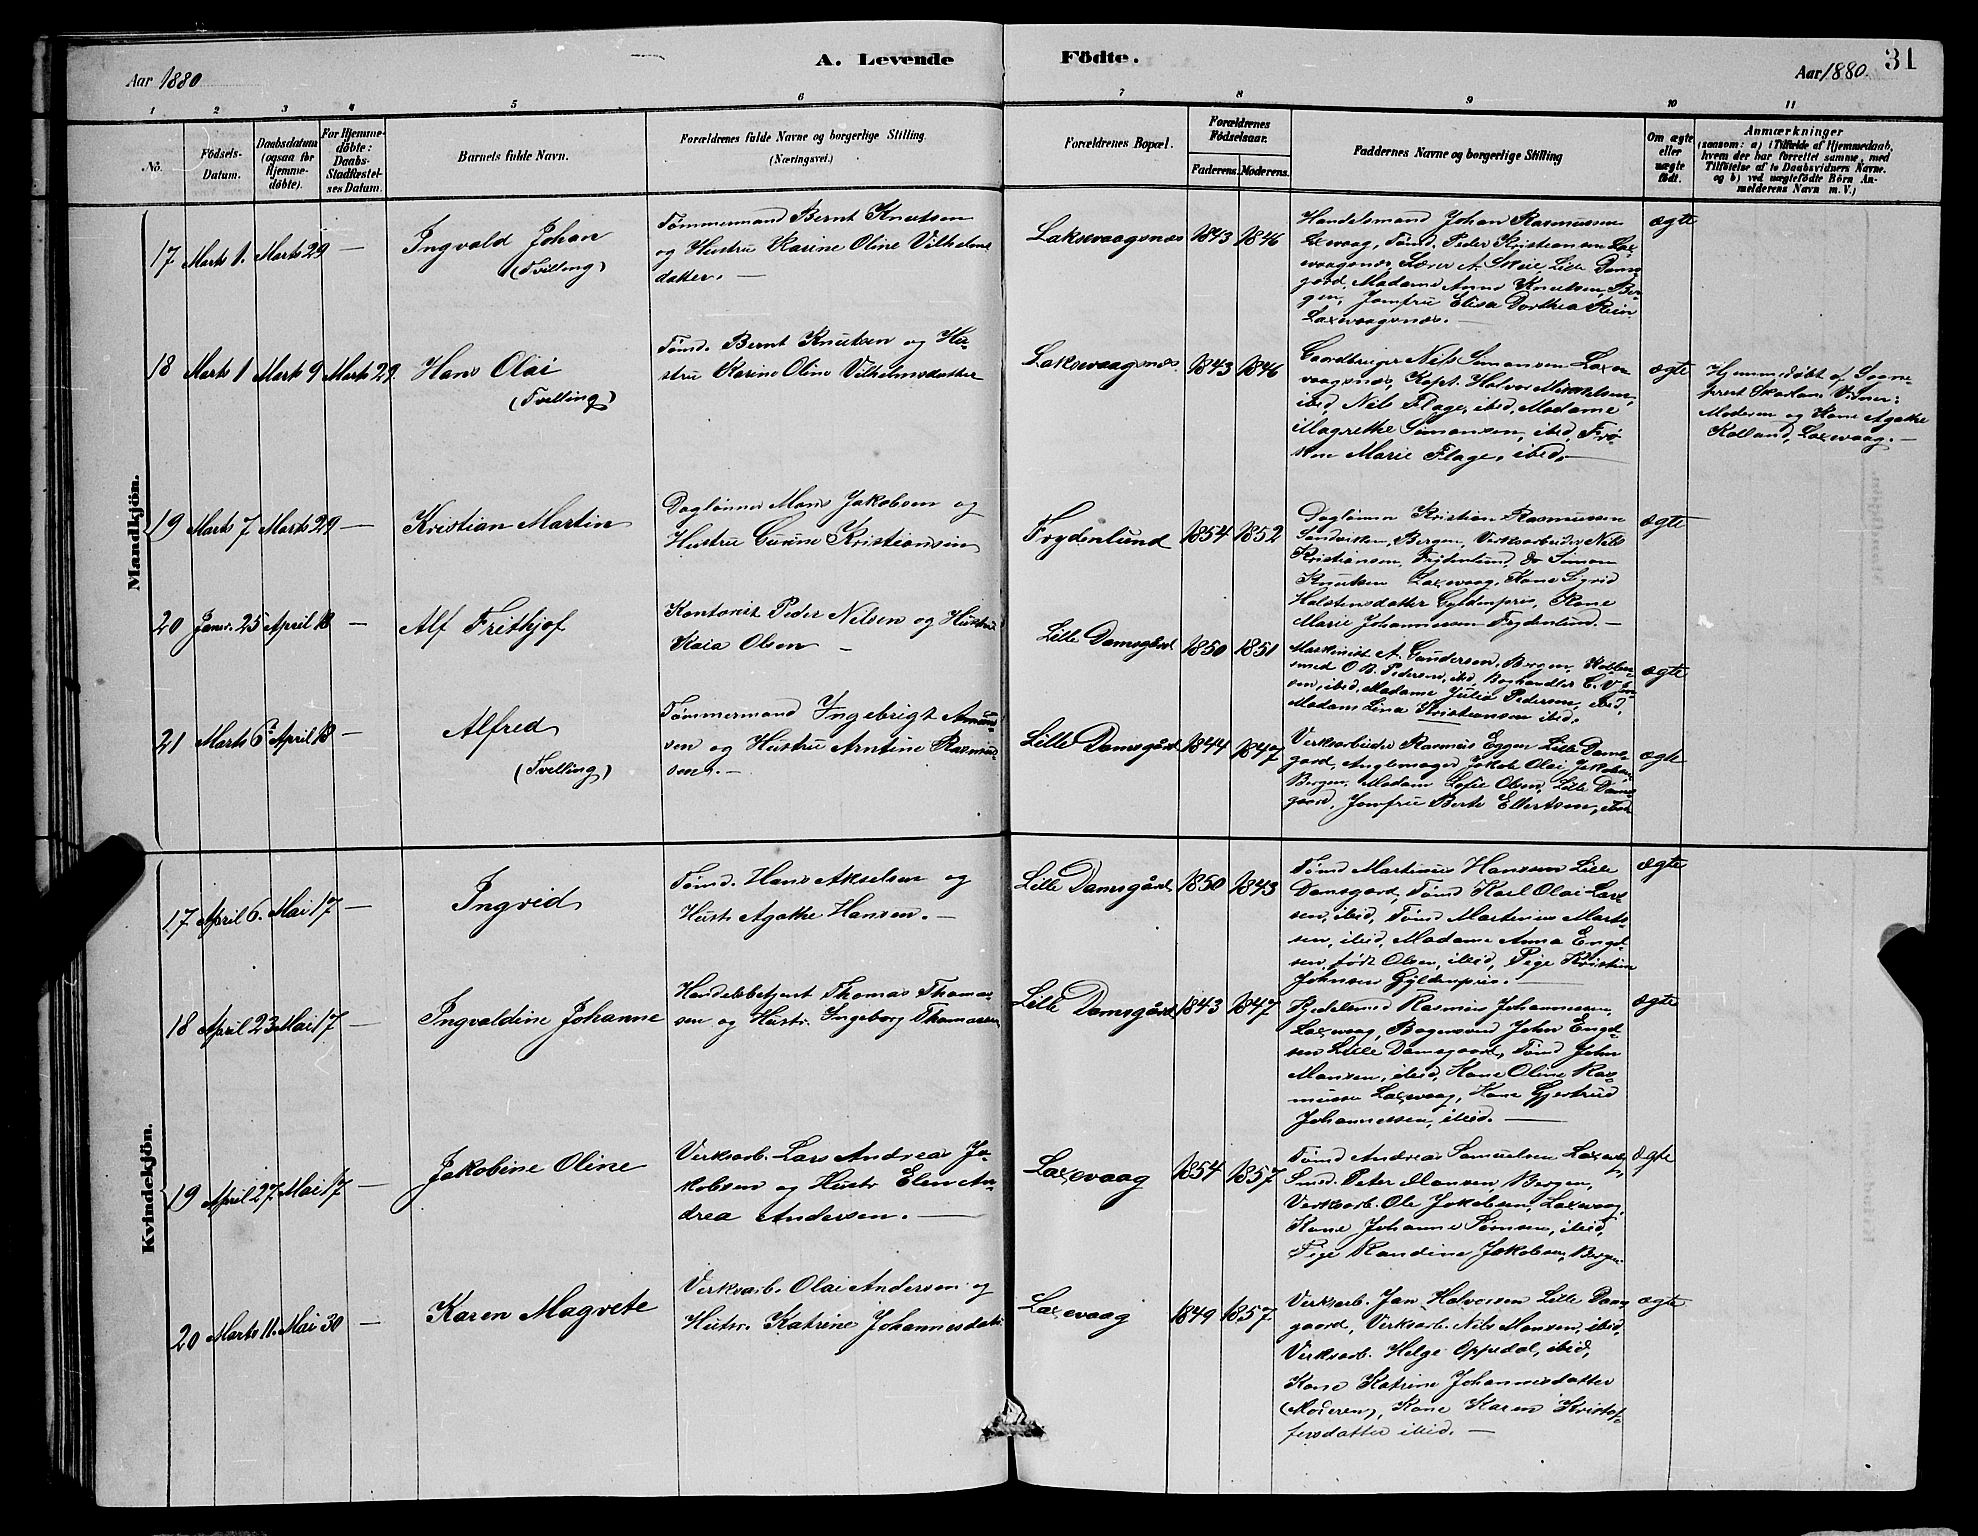 A. Levende Födte.
31
Aar 1880
Aar 1880.
1 2 3 4 5 6 7 8 9 10 11
No.
Födsels-
Datum.
Daabsdatum
(ogsaa for
Hjemme-
døbte).
For Hjemme-
døbte:
Daabs-
Stadfæstel-
ses Datum.
Barnets fulde Navn.
Forældrenes fulde Navne og borgerlige Stilling.
(Næringsvei.)
Forældrenes Bopæl.
Forældrenes
Födselsaar.
Faderens. Moderens.
Faddernes Navne og borgerlige Stilling
Om ægte
eller
uægte
født.
Anmærkninger
(saasom: a) i Tilfælde af Hjemmedaab,
hvem der har forrettet samme, med
Tilföielse af to Daabsvidners Navne.
og b) ved uægtefödte Börn An-
melderens Navn m. V.)
Mandkjön.
17 Marts 1. Marts 29 —
Ingvald Johan
(Tvilling)
Tømmermand Bernt Knutsen
og Hustru Karine Oline Vilhelms
datter. —
Laksevaagsnæs 1843 1846
Handelsmand Johan Rasmussen
Laxevaag, Tømd. Peder Kristiansen Lax-
vaagsnæs, Lærer A. Skeie Lille Dams-
gaard, Madame Anne Knutsen, Ber-
gen, Jomfru Elisa Dorthea Rein
Laxevaagsnæs. —
ægte
18 Marts 1 Marts 9 Marts 29.
Hans Olai
(Tvilling)
Tømd. Bernt Knutsen og Hu-
stru Karine Oline Vilhelmsdatter
Laksevaagsnæs 1843 1846
Gaardbruger Nils Simonsen Laxe-
vaagsnæs, Kapt. Halvor Mikkelsen,
ibid, Nils Flage, ibid, Madame
Magrethe Simonsen, ibid, Frø-
ken Marie Flage, ibid. —
ægte
Hjemmedøbt af Sogne-
prest Vidner:
Moderen og Kone Agathe
Kolland, Laxevaag. —
19 Marts 7 Marts 29 —
Kristian Martin
Daglønner Mons Jakobsen og
Hustru Gurine Kristiansen
Frydenlund 1854 1852
Daglønner Kristian Rasmussen
Sandviken, Bergen, Verksarbeider Nils
Kristiansen, Frydenlund, Do Simon
Knutsen Laxevaag, Kone Sigrid
Halstensdatter Gyldenpris, Kone
Marie Johannessen Frydenlund. —
ægte
20 Janr. 25 April 18 —
Alf Frithjof
Kontorist Peder Nilsen og Hustru
Kaia Olsen —
Lille Damsgård 1850 1851
Maskinist A. Gundersen, Bergen,
O. B. Pedersen, ibid, Boghandler C.
ibid, Madame Julia Pedersen, ibid,
Madam Lina Kristiansen ibid.
ægte
21 Marts 6 April 18 —
Alfred
(Tvilling)
Tømmermand Ingebrigt
sen og Hustru Arntine Rasmus-
sen. —
Lille Damsgård 1844 1847
Verksarbeider Rasmus Eggen Lille Dams-
gaard, Jakob Olai Jakobsen
Bergen, Madam Sofie Olsen, Lille Dams-
gaard, Jomfru Berte Ellertsen, ibid
ægte
Kvindekjön.
17 April 6. Mai 17 —
Ingrid
Tømd. Hans Akselsen og
Hustr. Agathe Hansen. —
Lille Damsgård 1850 1843
Tømd Martinus Hanssen Lille
Damsgaard, Tømd Karl Olai Lar-
sen, ibid, Tømd Martinius Mart-
sen, ibid, Madame Anna Engel-
sen født Olsen, ibid, Pige Kristine
Johnsen Gyldenpris. —
ægte
18 April 23 Mai 17 —
Ingvaldine Johanne
Handelsbetjent Thomas Thomas-
sen og Hustr. Ingeborg Thomassen
Lille Damsgård 1843 1847
Rasmus Johannessen,
Laxevaag, Bagersvend John Engel-
sen Lille Damsgaard, Tømd John
Monsen, ibid, Kone Oline Ras-
mussen Laxevaag, Kone Gjertrud
Johannessen, ibid. —
ægte
19 April 27 Mai 17 —
Jakobine Oline
Verksarb. Lars Andreas Ja-
kobsen og Hustr. Elen An-
drea Andersen. —
Laxevaag 1854 1857
Tømd Andreas Samuelsen Laxevaag,
Smed. Peter Hansen Bergen,
Verksarb. Ole Jakobsen, Laxevaag,
Kone Johanne Sørnsen, ibid,
Pige Randine Jakobsen, Bergen
ægte
20 Marts 11. Mai 30 —
Karen Magrete
Verksarb. Olai Andersen og
Hustr. Katrine Johannesdatr.
Laxevaag 1849 1857
Verksarb. Jan Halvorsen Lille Dams-
gaard, Verksarb. Nils Monsen, ibid,
Verksarb. Helge Oppedal, ibid,
Kone Katrine Johannesdatter
(Moderen), Kone Karen Kristof-
fersdatter ibid. —
ægte